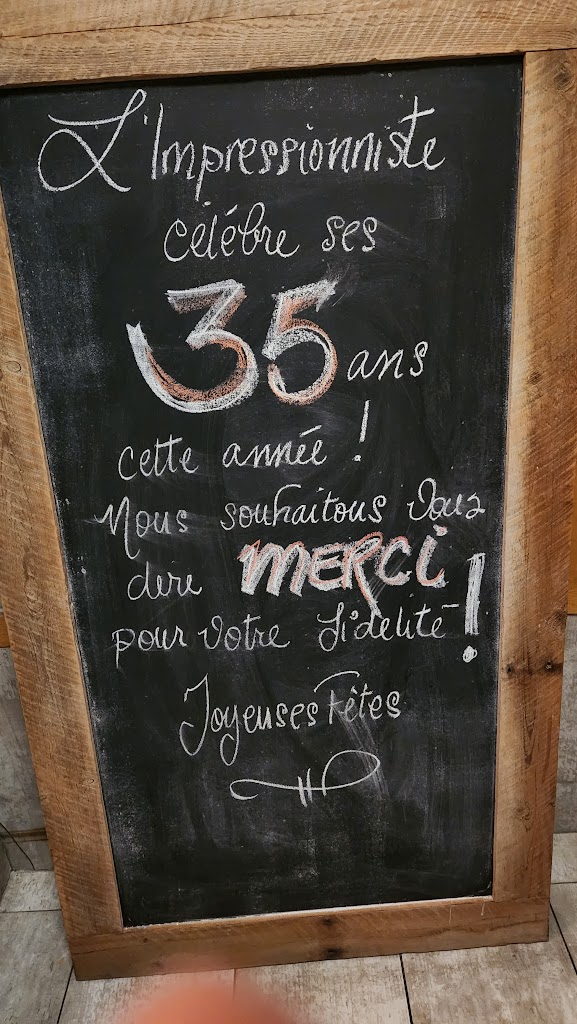 L'Impressionniste
célèbre ses
35 ans
cette année !
Nous souhaitons vous
dire MERCI
pour votre fidélité !
Joyeuses Fêtes